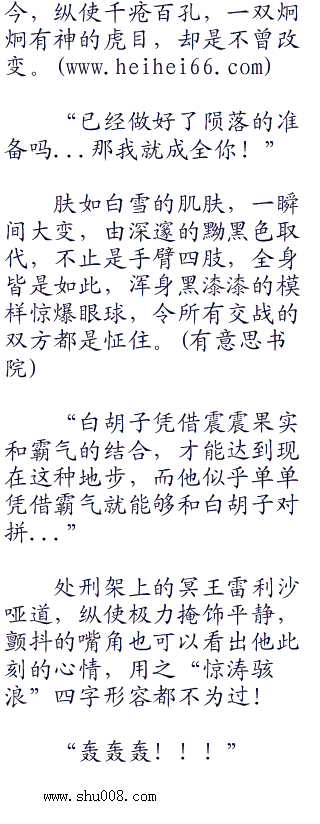 今，纵使千疮百孔，一双炯
炯有神的虎目，却是不曾改
变。(www.heihei66.com)
“已经做好了陨落的准
备吗...那我就成全你！”
肤如白雪的肌肤，一瞬
间大变，由深邃的黝黑色取
代，不止是手臂四肢，全身
皆是如此，浑身黑漆漆的模
样惊爆眼球，令所有交战的
双方都是怔住。(有意思书
院)
“白胡子凭借震震果实
和霸气的结合，才能达到现
在这种地步，而他似乎单单
凭借霸气就能够和白胡子对
拼...”
处刑架上的冥王雷利沙
哑道，纵使极力掩饰平静，
颤抖的嘴角也可以看出他此
刻的心情，用之“惊涛骇
浪”四字形容都不为过！
“轰轰轰！！！”
www.shu008.com